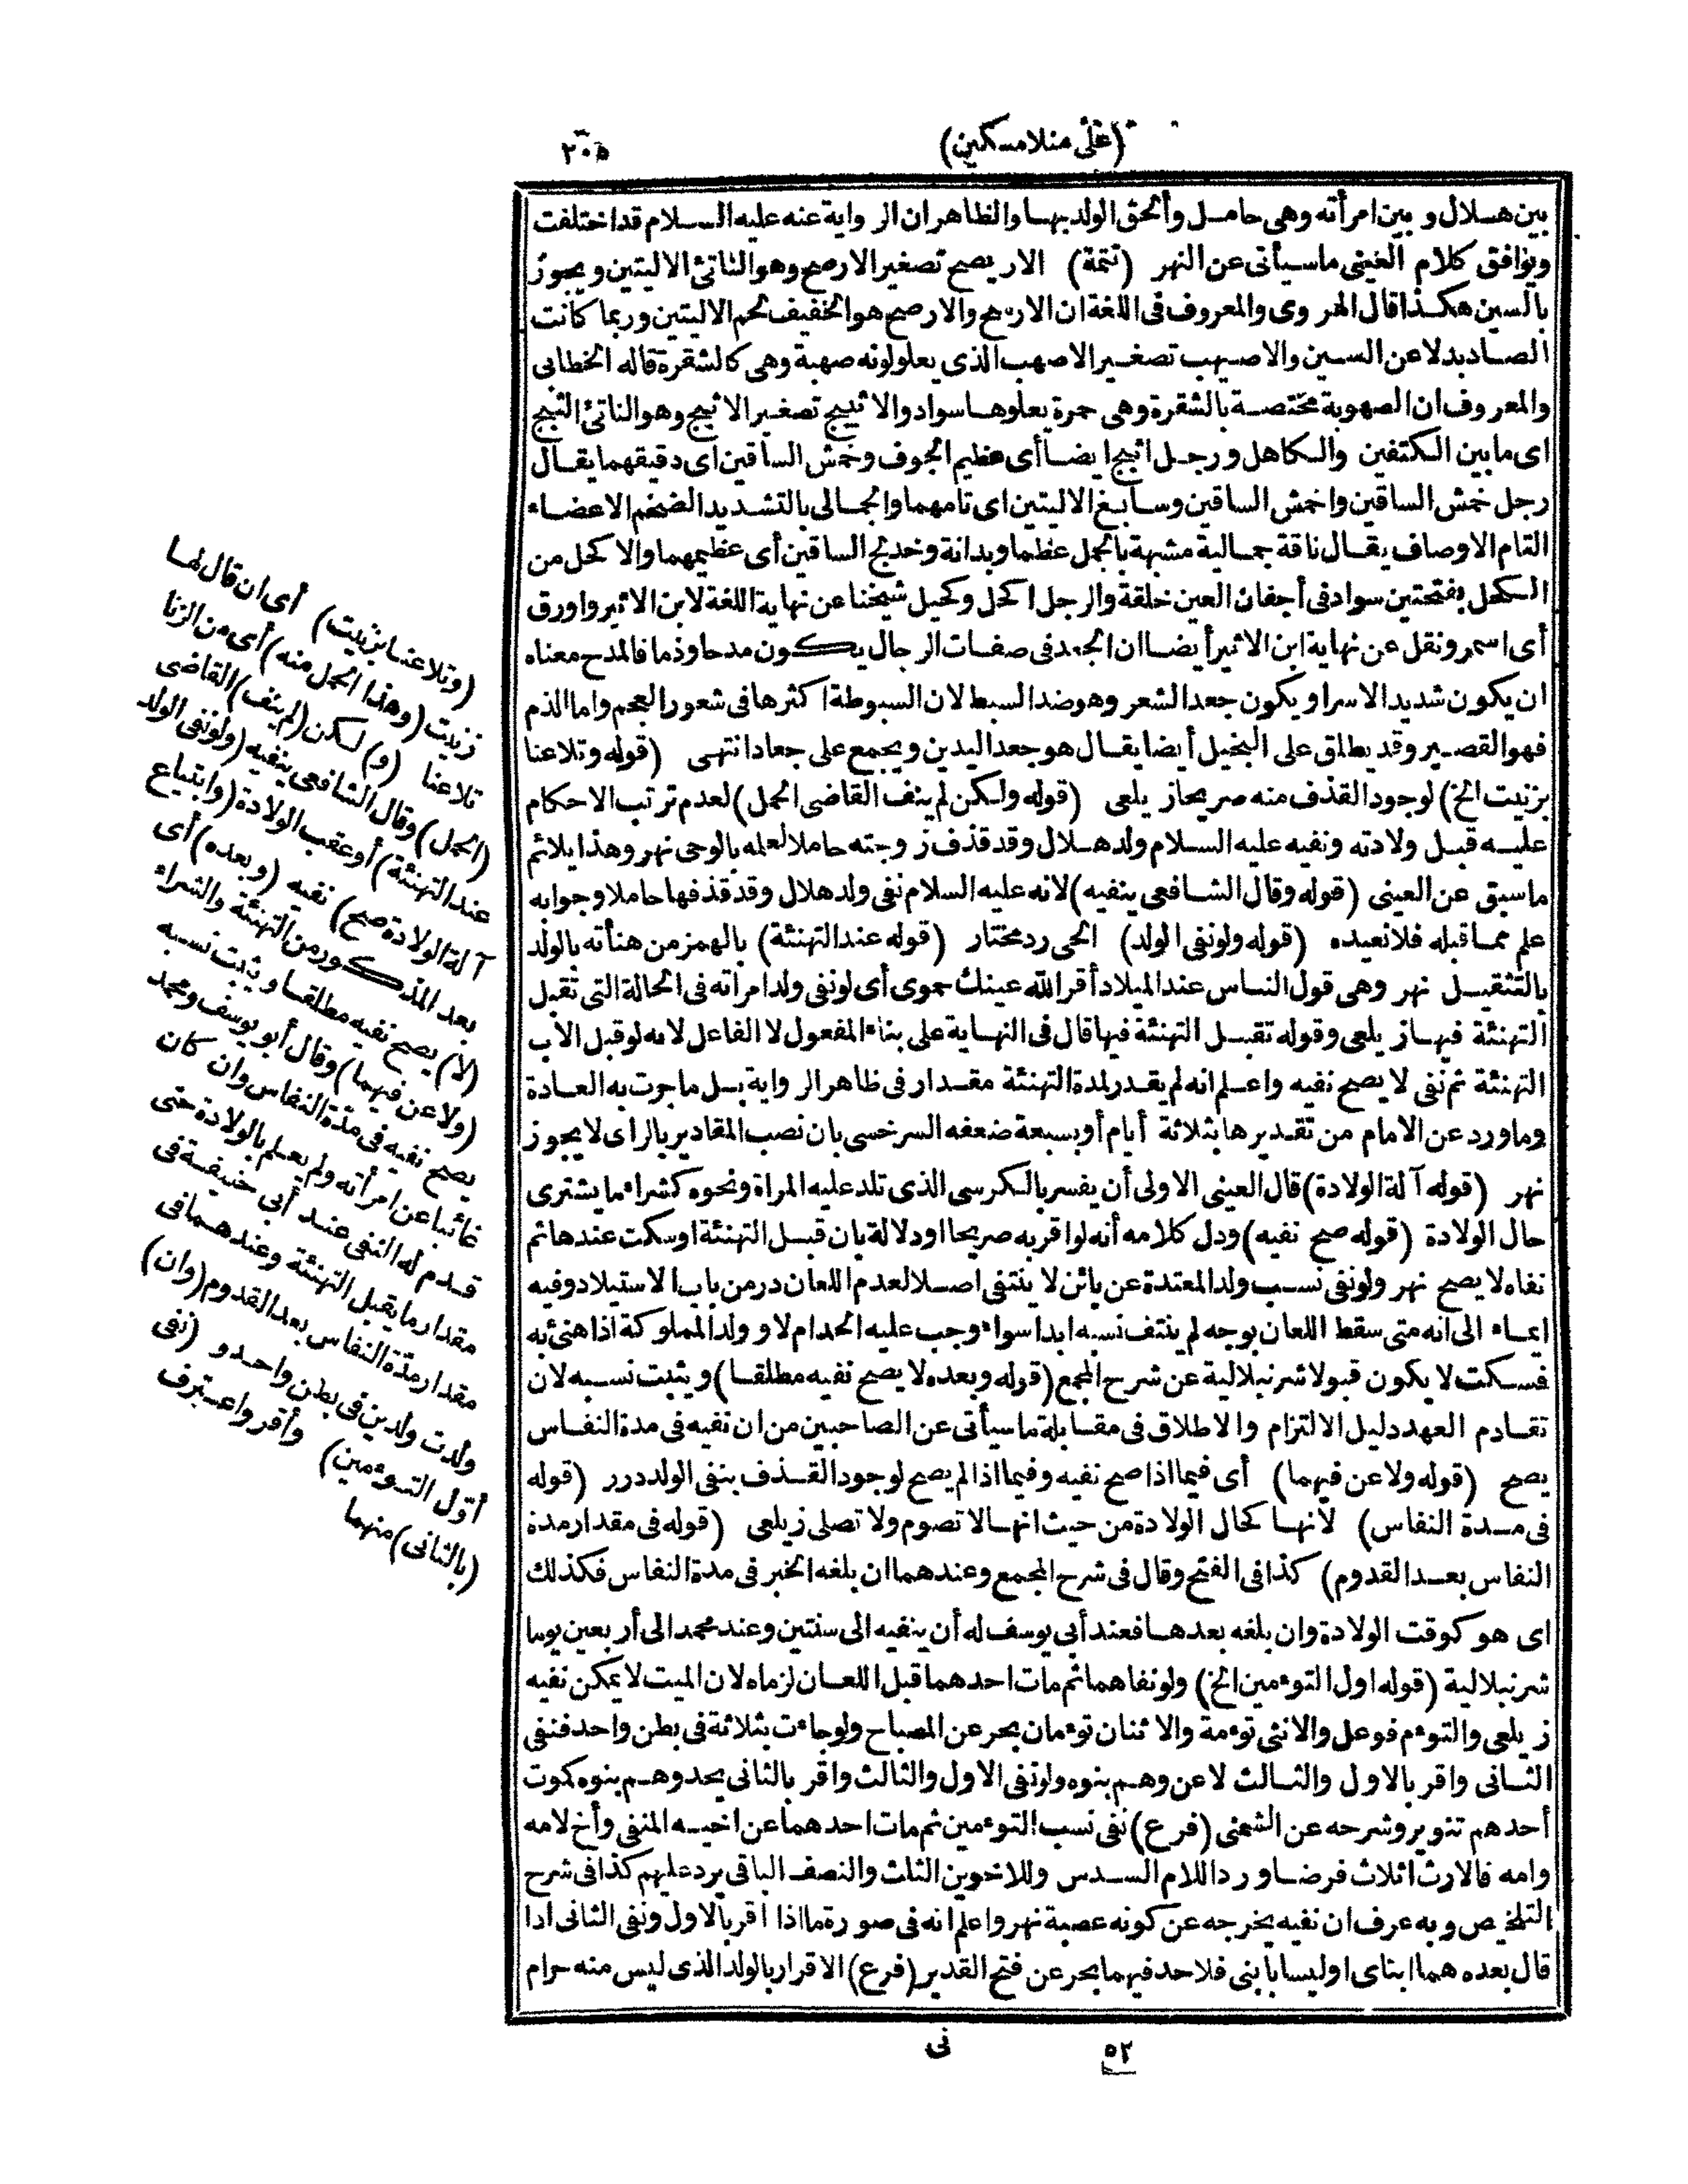 (على منلامسكين)
٢٠٥
بين هلال و بين امرأته وهى حامل وأ لحق الولد بها والظاهر ان الرواية عنه عليه السلام قد اختلفت
ويوافق كلام العينى ماسيأتى عن النهر (تتمة) الاريصح تصغير الارصح وهو الناتئ الاليتين ويجوز
بالسين هكذا قال الهروى والمعروف فى اللغة ان الارسح والارصح هو الخفيف لحم الاليتين وربما كانت
الصاد بدلا عن السين والاصيهب تصغير الاصهب الذى يعلو لونه صهبة وهى كالشقرة قاله الخطابى
والمعروف ان الصهوبة مختصة بالشقرة وهى حمرة يعلوها سواد والاثيبج تصغير الاثبج وهو الناتئ الثبج
اى ما بين الكتفين والكاهل ورجل اثبج ايضا أى عظيم الجوف وخمش الساقين اى دقيقهما يقال
رجل خمش الساقين واخمش الساقين وسابغ الاليتين اى تامهما والجمالى بالتشديد الضخم الاعضاء
التام الاوصاف يقال ناقة جمالية مشبهة بالجمل عظما وبدانة وخدلج الساقين أى عظيمهما والاكحل من
الكحل بفتحتين سواد فى أجفان العين خلقة والرجل اكحل وكحيل شيخنا عن نهاية اللغة لابن الاثير واورق
أى اسمر ونقل عن نهاية ابن الاثير أيضا ان الجعد فى صفات الرجال يكون مدحا وذما فالمدح معناه
ان يكون شديد الاسر او يكون جعد الشعر وهو ضد السبط لان السبوطة اكثرها فى شعور العجم واما الذم
فهو القصير وقد يطلق على البخيل أيضا يقال هو جعد اليدين ويجمع على جعاد انتهى (قوله وتلاعنا
بزنيت الخ) لوجود القذف منه صريحا زيلعى (قوله ولكن لم ينف القاضى الحمل) لعدم ترتب الاحكام
عليه قبل ولادته ونفيه عليه السلام ولد هلال وقد قذف زوجته حاملا لعلمه بالوحى نهر وهذا يلائم
ماسبق عن العينى (قوله وقال الشافعى ينفيه) لانه عليه السلام نفى ولد هلال وقد قذفها حاملا وجوابه
علم مما قبله فلا نعيده (قوله ولو نفى الولد) الحى رد مختار (قوله عند التهنئة) بالهمز من هنأته بالولد
بالتثقيل نهر وهى قول الناس عند الميلاد أقر الله عينك حموى أى لو نفى ولد امرأته فى الحالة التى تقبل
التهنئة فيها زيلعى وقوله تقبل التهنئة فيها قال فى النهاية على بناء المفعول لا الفاعل لانه لو قبل الأب
التهنئة ثم نفى لا يصح نفيه واعلم انه لم يقدر لمدة التهنئة مقدار فى ظاهر الرواية بل ما جرت به العادة
وما ورد عن الامام من تقديرها بثلاثة أيام أو بسبعة ضعفه السرخسى بان نصب المقادير بالراى لا يجوز
نهر (قوله آلة الولادة) قال العينى الاولى أن يفسر بالكرسى الذى تلد عليه المراة ونحوه كشراء ما يشترى
حال الولادة (قوله صح نفيه) ودل كلامه أنه لو اقر به صريحا او دلالة بان قبل التهنئة او سكت عندها ثم
نفاه لا يصح نهر ولو نفى نسب ولد المعتدة عن بائن لا ينتفى اصلا لعدم اللعان در من باب الاستيلاد وفيه
ايماء الى انه متى سقط اللعان بوجه لم ينتف نسبه ابدا سواء وجب عليه الحد ام لا و ولد المملوكة اذا هنئ به
فسكت لا يكون قبولا شرنبلالية عن شرح المجمع (قوله وبعده لا يصح نفيه مطلقا) ويثبت نسبه لان
تقادم العهد دليل الالتزام والاطلاق فى مقابلة ما سيأتى عن الصاحبين من ان نفيه فى مدة النفاس
يصح (قوله ولاعن فيهما) أى فيما اذا صح نفيه وفيما اذا لم يصح لوجود القذف بنفى الولد درر (قوله
فى مدة النفاس) لانها كحال الولادة من حيث انها لا تصوم ولا تصلى زيلعى (قوله فى مقدار مدة
النفاس بعد القدوم) كذا فى الفتح وقال فى شرح المجمع وعندهما ان بلغه الخبر فى مدة النفاس فكذلك
اى هو كوقت الولادة وان بلغه بعدها فعند أبى يوسف له أن ينفيه الى سنتين وعند محمد الى أربعين يوما
شرنبلالية (قوله اول التوءمين الخ) ولو نفاهما ثم مات احدهما قبل اللعان لزماه لان الميت لا يمكن نفيه
زيلعى والتوءم فوعل والانثى توءمة والاثنان توءمان بحر عن المصباح ولو جاءت بثلاثة فى بطن واحد فنفى
الثانى واقر بالاول والثالث لاعن وهم بنوه ولو نفى الاول والثالث واقر بالثانى يحد وهم بنوه كموت
أحدهم تنوير وشرحه عن الشمنى (فرع) نفى نسب التوءمين ثم مات احدهما عن اخيه المنفى وأخ لامه
وامه فالارث اثلاث فرضا وردا للام السدس وللاخوين الثلث والنصف الباقى يرد عليهم كذا فى شرح
التلخيص وبه عرف ان نفيه يخرجه عن كونه عصبة نهر واعلم انه فى صورة ما اذا اقر بالاول ونفى الثانى اذا
قال بعده هما ابناى او ليسا بابنى فلا حد فيهما بحر عن فتح القدير (فرع) الاقرار بالولد الذى ليس منه حرام
(وتلاعنا بزنيت) أى ان قال لها
زنيت (وهذا الحمل منه) أى من الزنا
تلاعنا (و) لكن (لم ينف) القاضى
(الحمل) وقال الشافعى ينفيه (ولو نفى الولد
عند التهنئة) أو عقب الولادة (وابتياع
آلة الولادة صح) نفيه (وبعده) أى
بعد المذكور من التهنئة والشراء
(لا) يصح نفيه مطلقا ويثبت نسبه
(ولاعن فيهما) وقال أبو يوسف ومحمد
يصح نفيه فى مدّة النفاس وان كان
غائبا عن امرأته ولم يعلم بالولادة حتى
قدم له النفى عند أبى حنيفة فى
مقدار ما يقبل التهنئة وعندهما فى
مقدار مدّة النفاس بعد القدوم (وان)
ولدت ولدين فى بطن واحد و (نفى
أوّل التوءمين) وأقر واعترف
(بالثانى) منهما
٥٢
نى